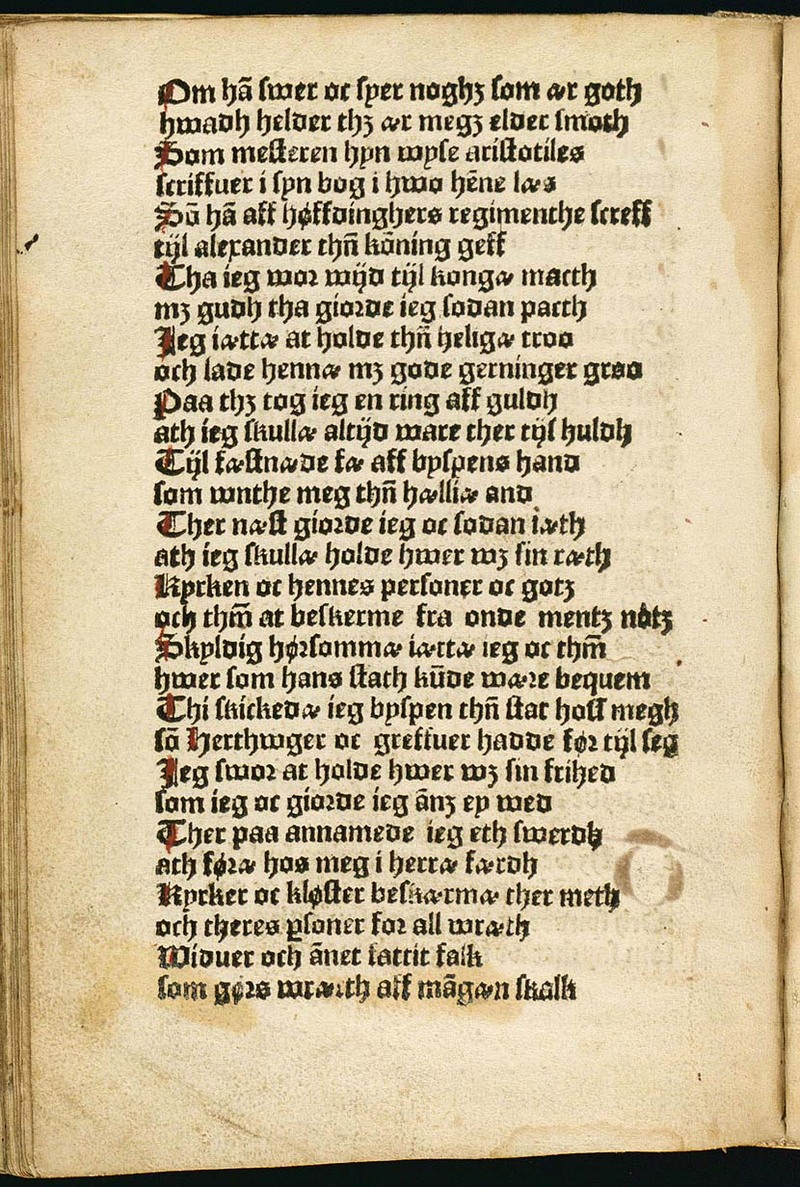 Om hā swer oc sper noghꝫ som ær goth
hwadh helder thꝫ ær megꝫ elder smoth
Som mesteren hyn wyse aristotiles
scriffuer i syn bog i hwo hēne læs
Sū hā aff høffdinghers regimenthe screff
tijl alexander thn̄ kōning geff
Tha ieg wor wijd tijl kongæ macth
mꝫ gudh tha giorde ieg sodan pacth
Jeg iættæ at holde thn̄ heligæ troo
och lade hennæ mꝫ gode gerninger groo
Paa thꝫ tog ieg en ring aff guldh
ath ieg skullæ altijd ware ther tijl huldh
Tijl fæstnæde fæ aff byspens hand
som wnthe meg thn̄ hælliæ and
Ther næst giorde ieg oc sodan iæth
ath ieg skullæ holde hwer wꝫ sin ræth
Kyrken oc hennes personer oc gotꝫ
och thm̄ at beskerme fra onde mentꝫ nötꝫ
Skyldig hørsommæ iættæ ieg oc thm̄
hwer som hans stath kūde wære bequem
Thi skickedæ ieg byspen thn̄ stat hoss megh
sā Herthwger oc greffuer hadde før tijl seg
Jeg swor at holde hwer wꝫ sin frihed
som ieg oc giorde ieg ānꝫ ey wed
Ther paa annamede ieg eth swerdh
ath føræ hos meg i herræ færdh
Kyrker oc kløster beskærmæ ther meth
och theres ꝑsoner for all wræth
Widuer och ānet fattit falk
som gørs wrærth aff māgæn skalk